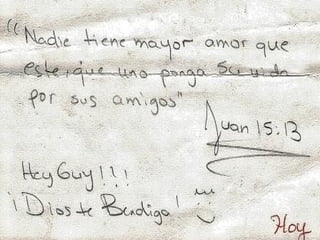 "Nadie tiene mayor amor que
este, que uno ponga su vida
por sus amigos"
Juan 15:13
Hey Guy!!!
¡Dios te Bendiga!
Hoy